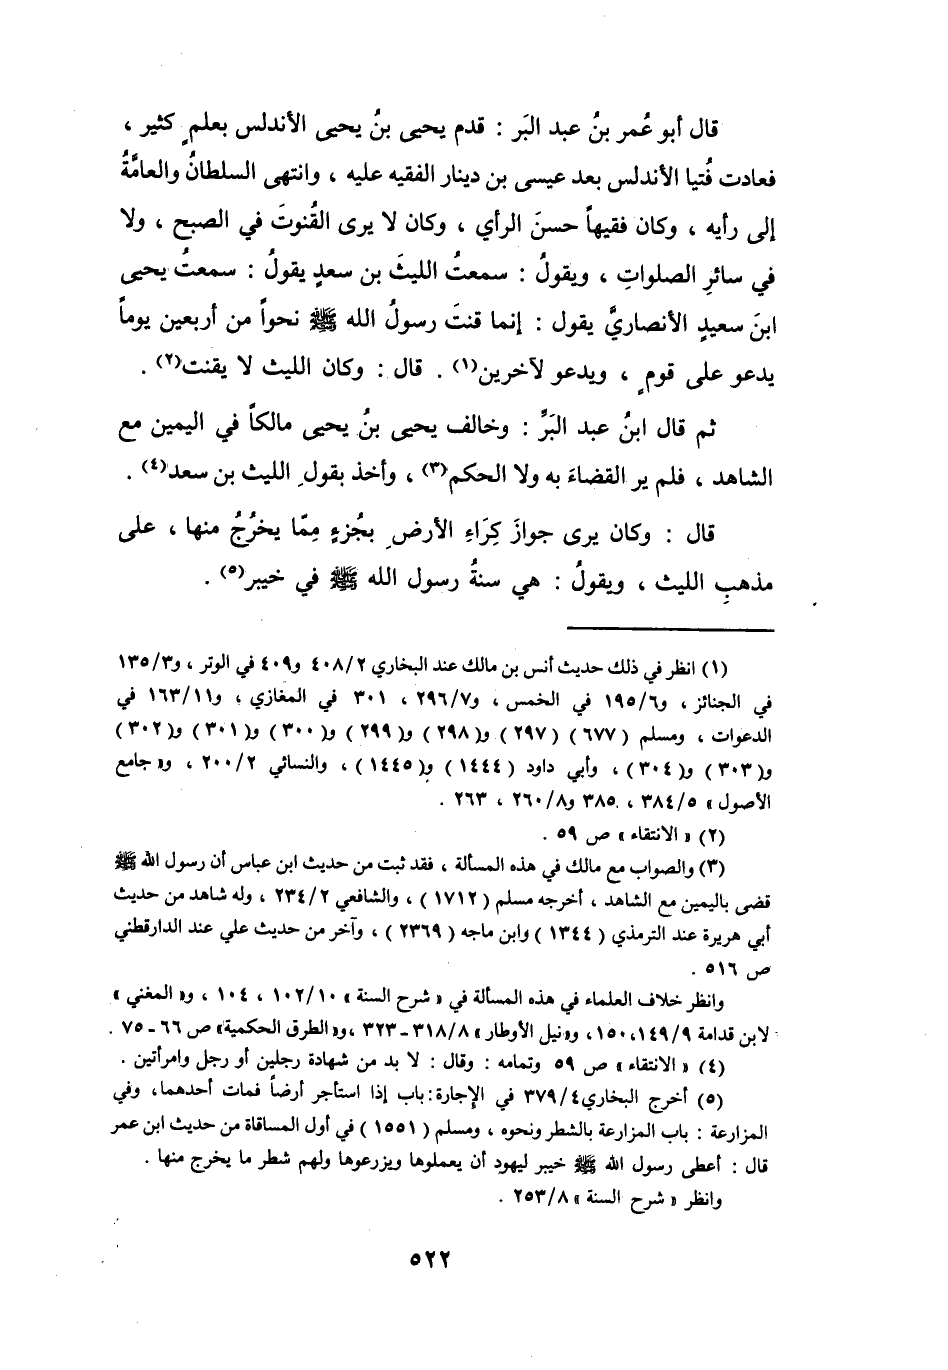 قال أبو عُمر بنُ عبد البَر : قدم يحيى بنُ يحيى الأندلس بعلمٍ كثير ،
فعادت فُتيا الأندلس بعد عيسى بن دينار الفقيه عليه ، وانتهى السلطانُ والعامَّةُ
إلى رأيه ، وكان فقيهاً حسنَ الرأي ، وكان لا يرى القُنوتَ في الصبح ، ولا
في سائرِ الصلواتِ ، ويقولُ : سمعتُ الليثَ بن سعدٍ يقولُ : سمعتُ يحيى
ابنَ سعيدٍ الأنصاريَّ يقول : إنما قنتَ رسولُ الله ﷺ نحواً من أربعين يوماً
يدعو على قومٍ ، ويدعو لآخرين(١) . قال : وكان الليث لا يقنت(٢) .
ثم قال ابنُ عبد البَرِّ : وخالف يحيى بنُ يحيى مالكاً في اليمين مع
الشاهد ، فلم ير القضاءَ به ولا الحكم(٣) ، وأخذ بقولِ الليث بن سعد(٤) .
قال : وكان يرى جوازَ كِرَاءِ الأرضِ بجُزءٍ مِمّا يخرُجُ منها ، على
مذهبِ الليث ، ويقولُ : هي سنةُ رسول الله ﷺ في خيبر(٥) .
(١) انظر في ذلك حديث أنس بن مالك عند البخاري ٤٠٨/٢ و٤٠٩ في الوتر ، و١٣٥/٣
في الجنائز ، و١٩٥/٦ في الخمس ، و٢٩٦/٧ ، ٣٠١ في المغازي ، و١٦٣/١١ في
الدعوات ، ومسلم (٦٧٧) (٢٩٧) و(٢٩٨) و(٢٩٩) و(٣٠٠) و(٣٠١) و(٣٠٢)
و(٣٠٣) و(٣٠٤) ، وأبي داود (١٤٤٤) و(١٤٤٥) ، والنسائي ٢٠٠/٢ ، و« جامع
الأصول » ٣٨٤/٥ ، ٣٨٥ و٢٦٠/٨ ، ٢٦٣ .
(٢) « الانتقاء » ص ٥٩ .
(٣) والصواب مع مالك في هذه المسألة ، فقد ثبت من حديث ابن عباس أن رسول الله ﷺ
قضى باليمين مع الشاهد ، أخرجه مسلم (١٧١٢) ، والشافعي ٢٣٤/٢ ، وله شاهد من حديث
أبي هريرة عند الترمذي (١٣٤٤) وابن ماجه (٢٣٦٩) ، وآخر من حديث علي عند الدارقطني
ص ٥١٦ .
وانظر خلاف العلماء في هذه المسألة في « شرح السنة » ١٠٢/١٠ ، ١٠٤ ، و« المغني »
لابن قدامة ١٤٩/٩ ، ١٥٠ ، و« نيل الأوطار » ٣١٨/٨ - ٣٢٣ ، و« الطرق الحكمية » ص ٦٦ - ٧٥ .
(٤) « الانتقاء » ص ٥٩ وتمامه : وقال : لا بد من شهادة رجلين أو رجل وامرأتين .
(٥) أخرج البخاري ٣٧٩/٤ في الإجارة : باب إذا استأجر أرضاً فمات أحدهما، وفي
المزارعة : باب المزارعة بالشطر ونحوه ، ومسلم (١٥٥١) في أول المساقاة من حديث ابن عمر
قال : أعطى رسول الله ﷺ خيبر ليهود أن يعملوها ويزرعوها ولهم شطر ما يخرج منها .
وانظر « شرح السنة » ٢٥٣/٨ .
٥٢٢